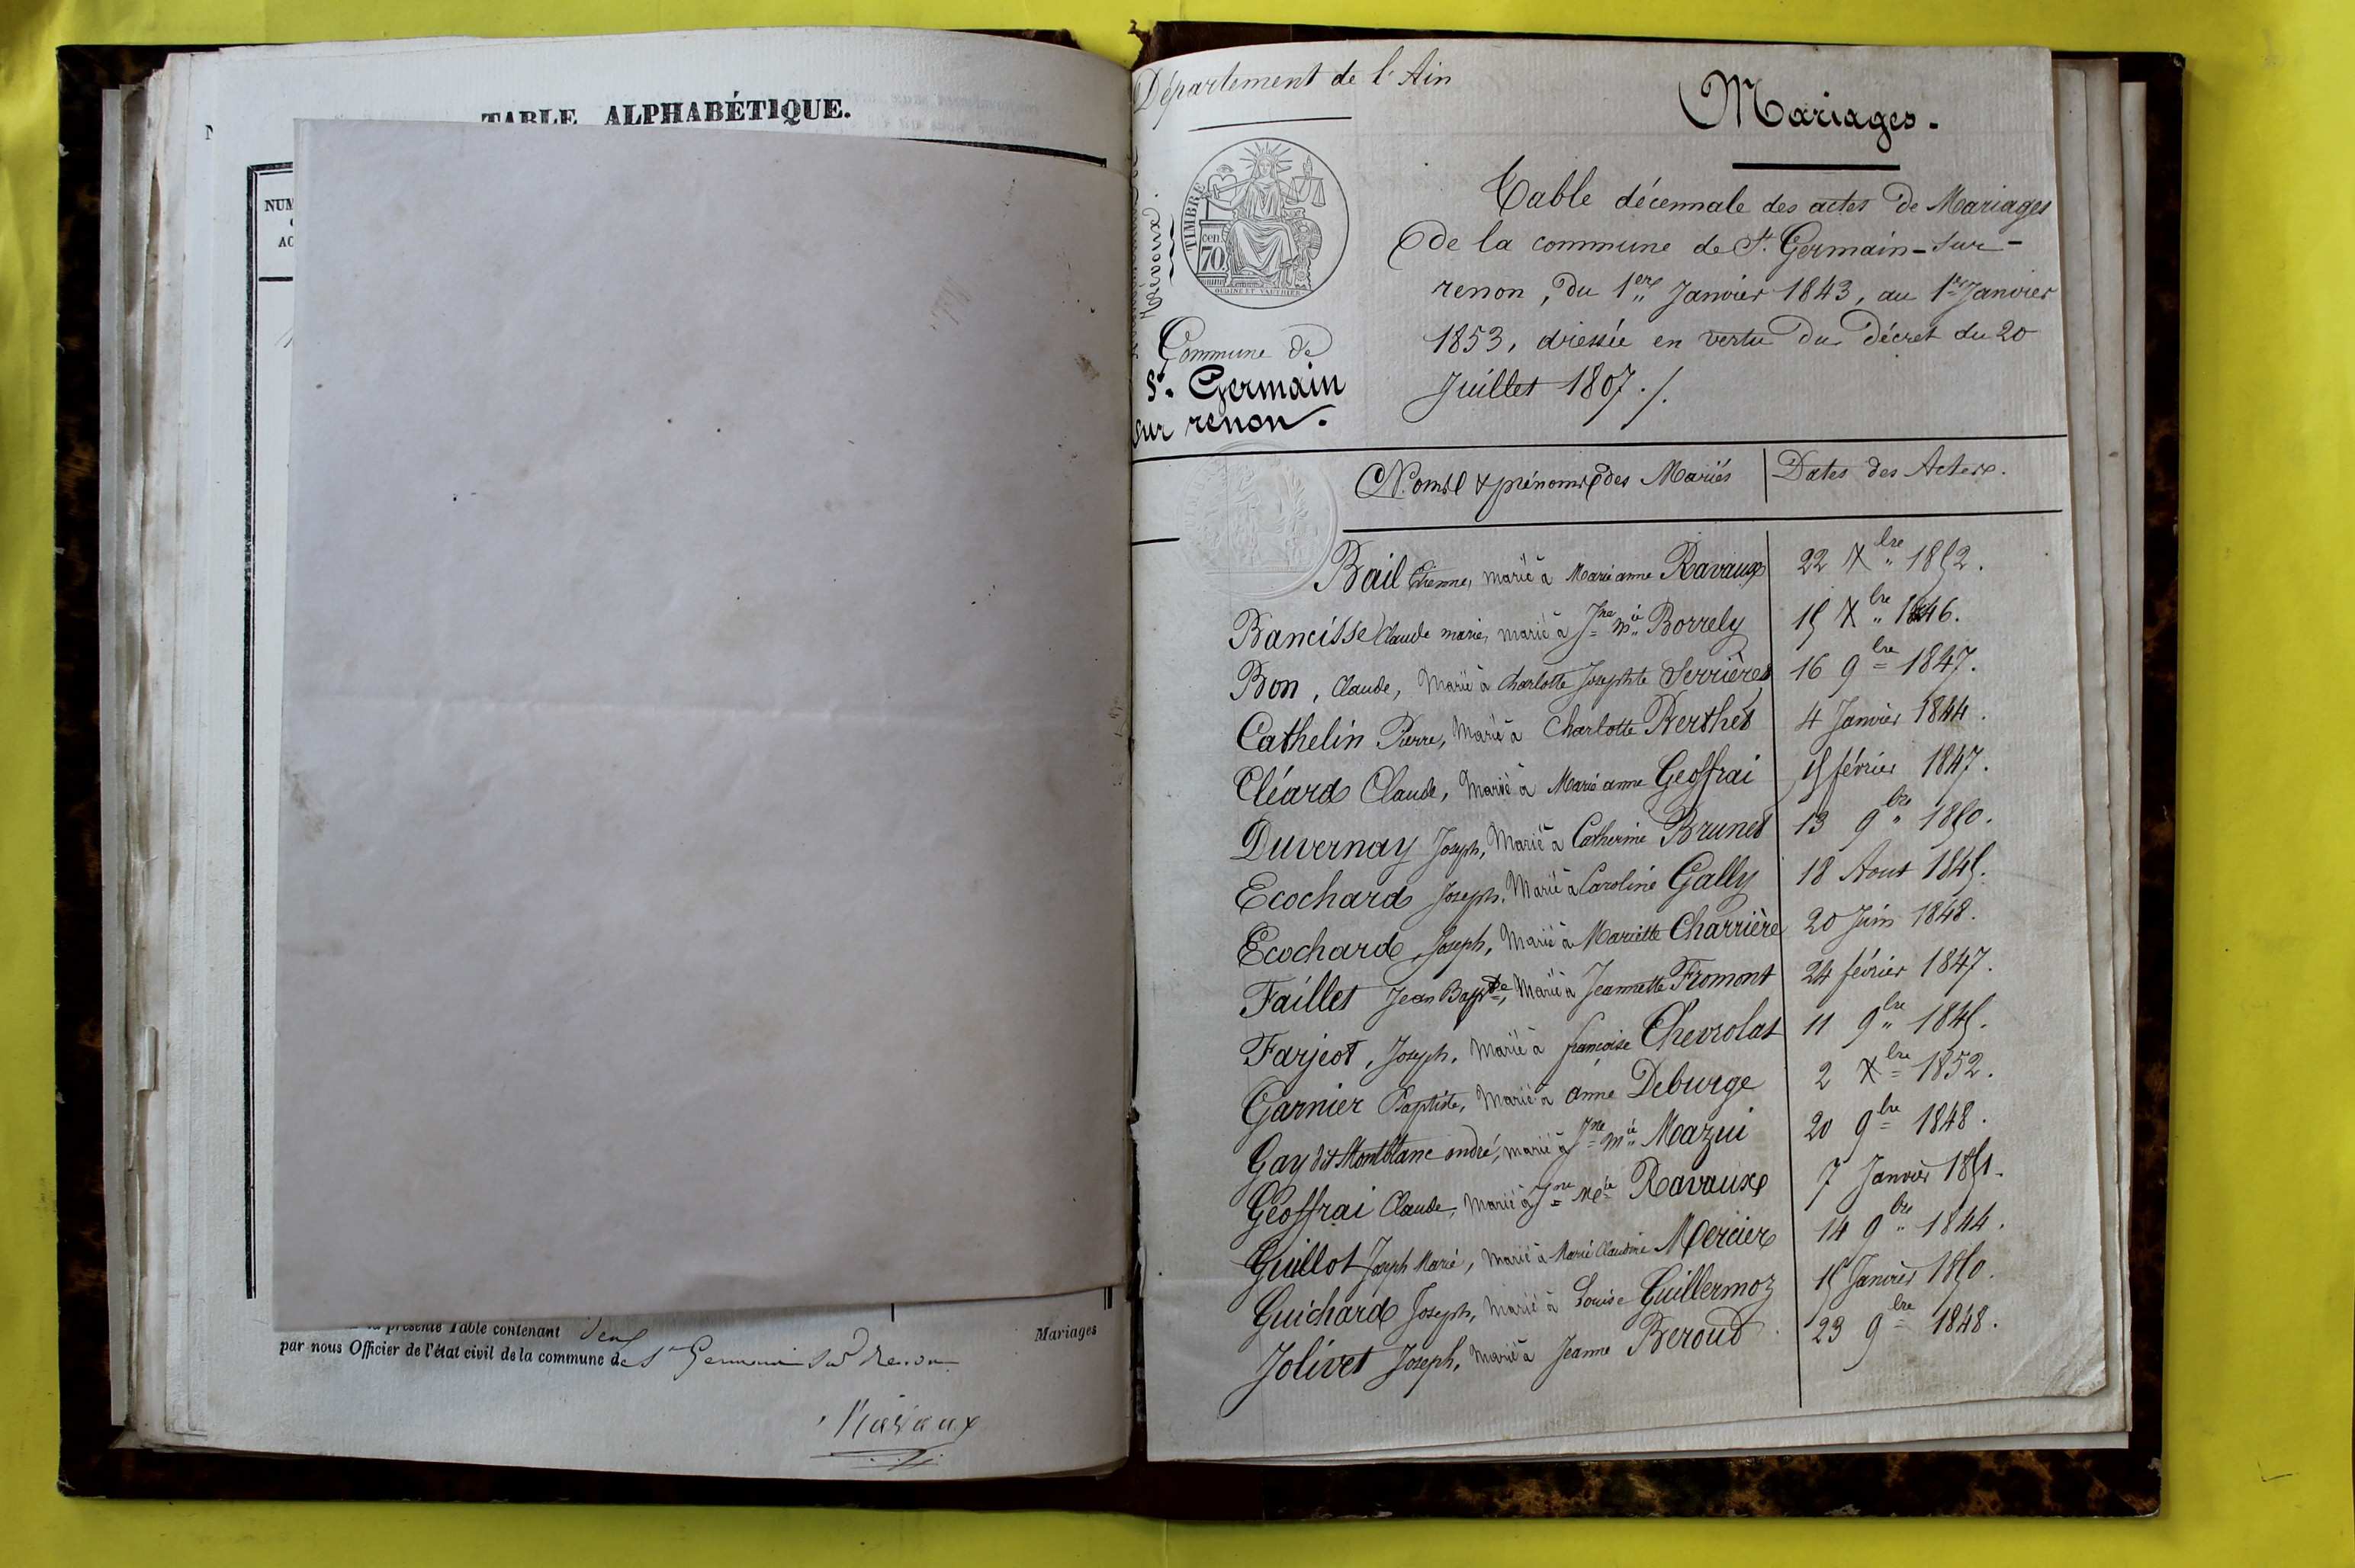 TABLE ALPHABÉTIQUE.
NUM
AC
la présente Table contenant deux
Mariages
par nous Officier de l'état civil de la commune de St Germain sur Renon
Ravaux
Département de l'Ain
Trévoux.
TIMBRE
70
OUDINÉ ET VAUTHIER
Commune de
St. Germain
sur renon.
Mariages.
Table décennale des actes de Mariages
de la commune de St. Germain-sur-
renon, du 1er Janvier 1843, au 1er Janvier
1853, dressée en vertu du Décret du 20
Juillet 1807./.
Noms & prénoms des Mariés Dates des Actes.
Bail Etienne, marié à Marie anne Ravaux 22 Xbre 1852.
Bancisse Claude marie, marié à Jne Mie Borrely 15 Xbre 1846.
Bon, Claude, Marié à Charlotte Josephte Serrières 16 9bre 1847.
Cathelin Pierre, Marié à Charlotte Berthet 4 Janvier 1844.
Cléard Claude, Marié à Marie anne Geoffrai 15 février 1847.
Duvernay Joseph, Marié à Catherine Brunet 13 9bre 1850.
Ecochard Joseph, Marié à Caroline Gally 18 Aout 1845.
Ecochard Joseph, Marié à Mariette Charrière 20 Juin 1848.
Faillet Jean Baptte, Marié à Jeannette Fromont 24 février 1847.
Farjeot, Joseph, Marié à françoise Chevrolat 11 9bre 1845.
Garnier Baptiste, Marié à anne Deburge 2 Xbre 1852.
Gay dit Montblanc andré, marié à Jne Mie Mazui 20 9bre 1848.
Geoffrai Claude, Marié à Jne Mie Ravaux 7 Janvier 1851.
Guillot Joseph Marie, Marié à Marie Claudine Mercier 14 9bre 1844.
Guichard Joseph, Marié à Louise Guillermoz 15 Janvier 1850.
Jolivet Joseph, Marié à Jeanne Beroud 23 9bre 1848.